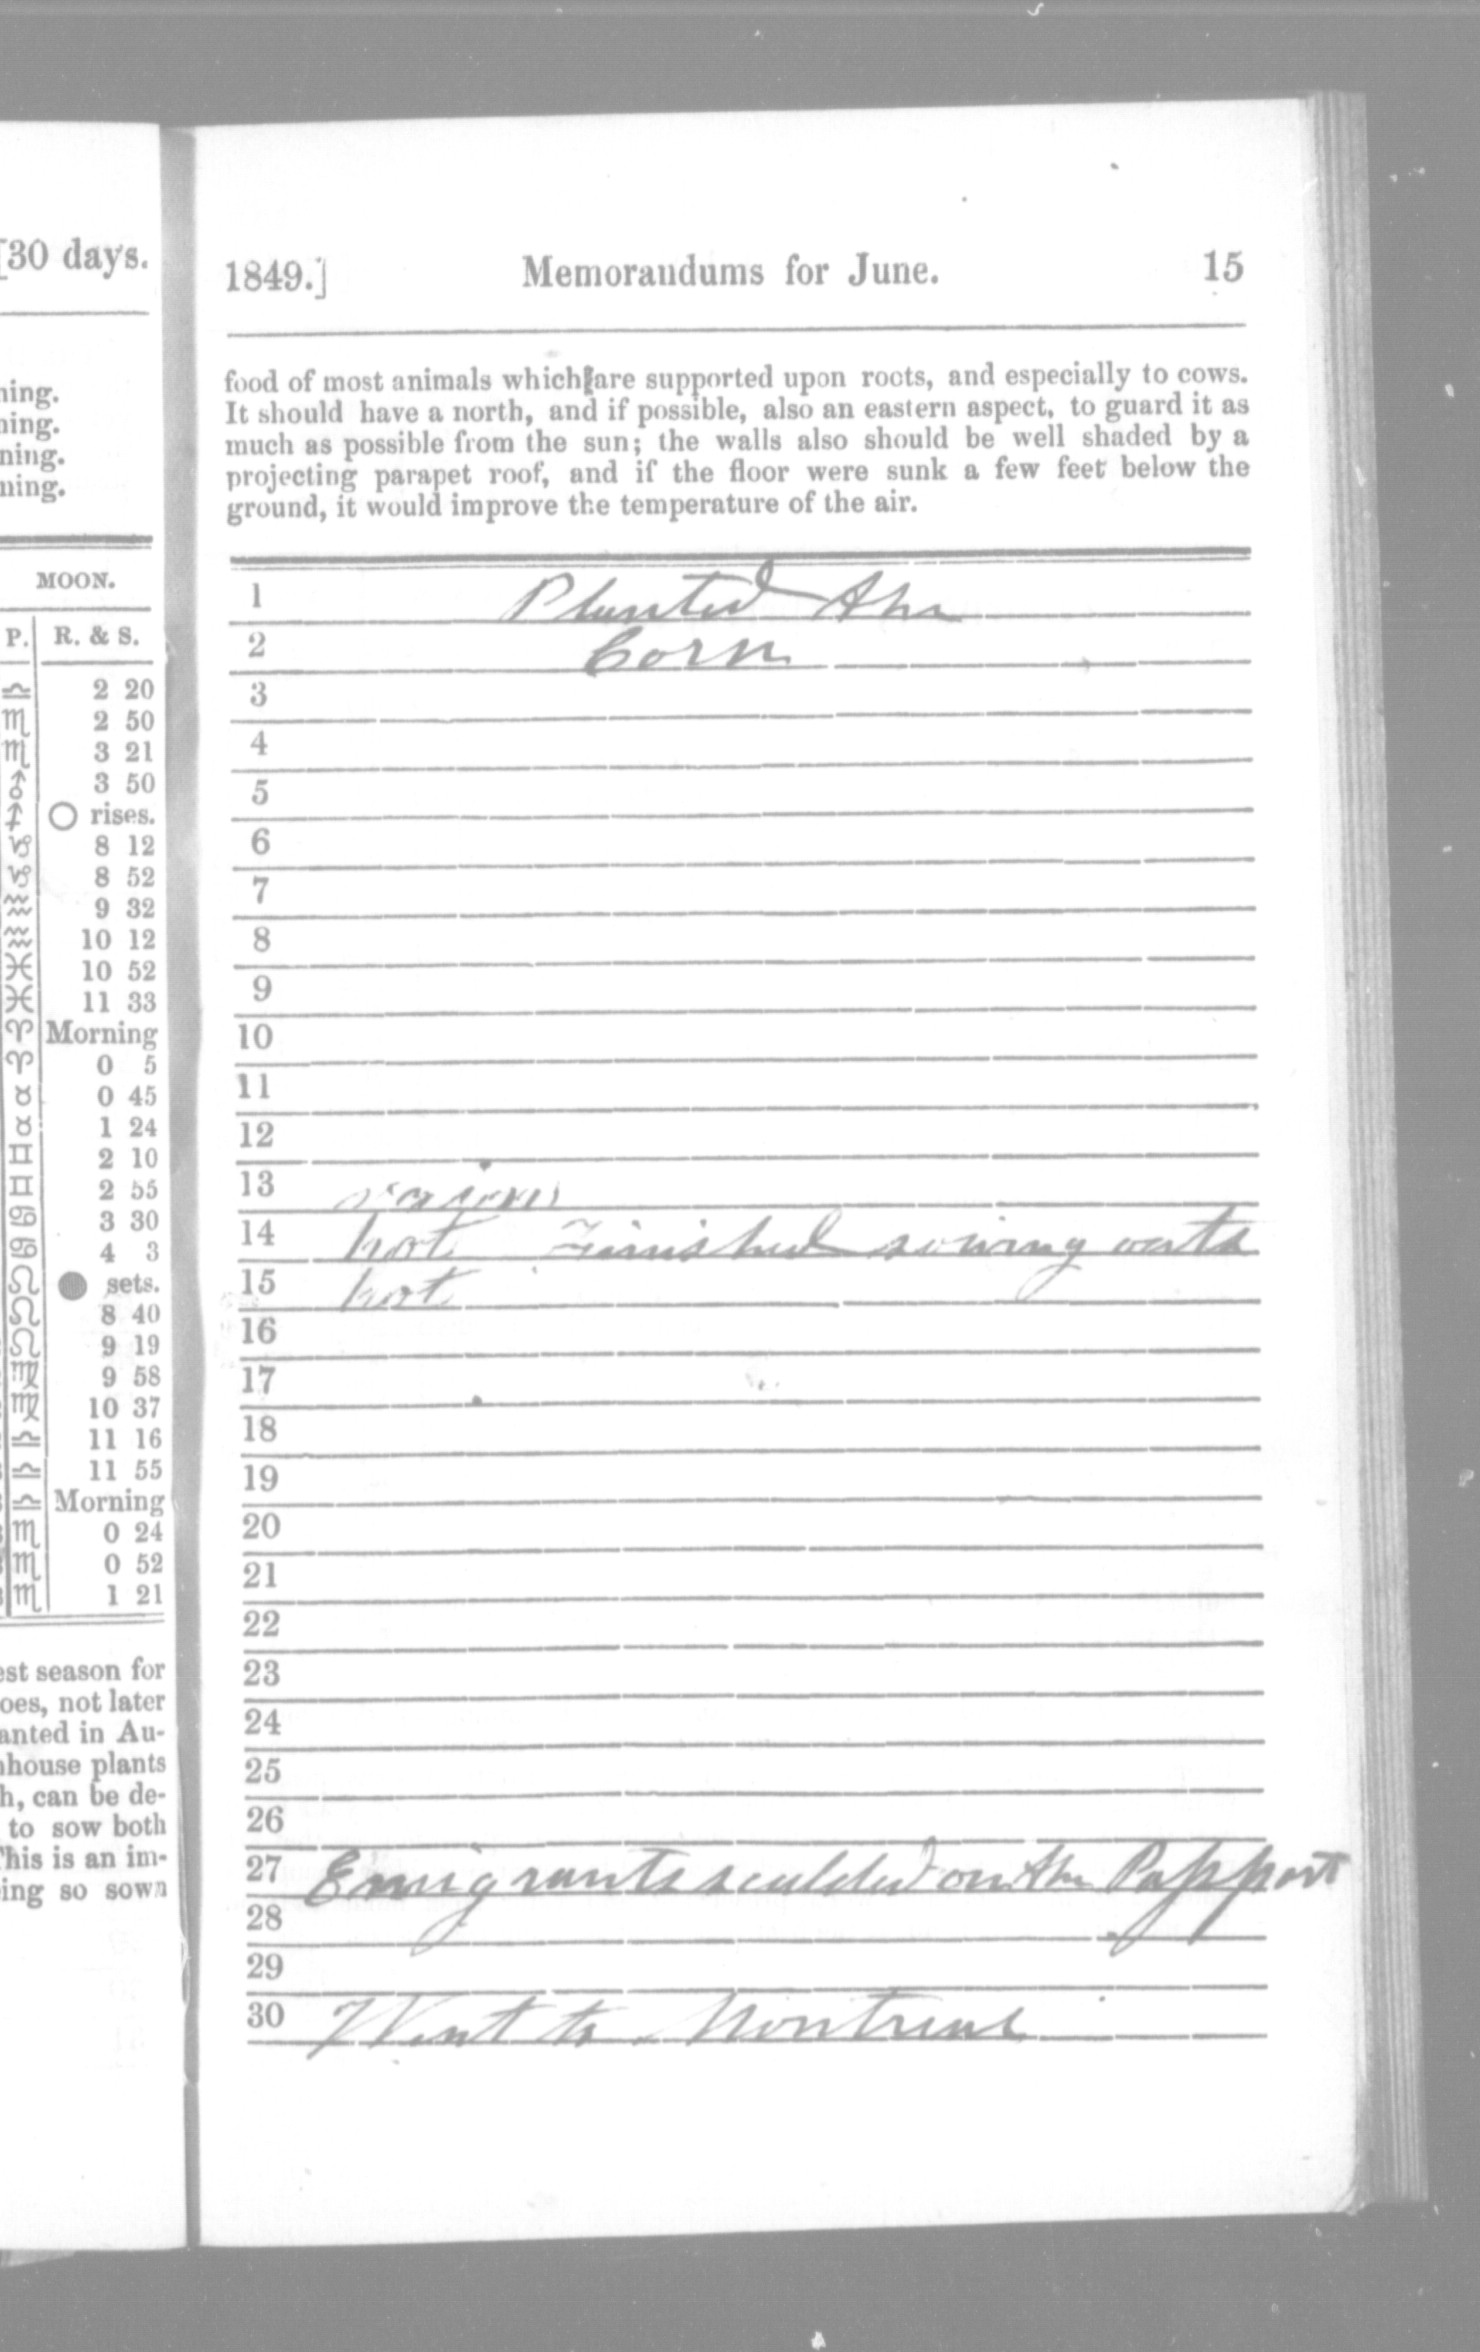 [30 days.
ning.
ning.
ning.
ning.
MOON.
P. R. & S.
♎ 2 20
♏ 2 50
♏ 3 21
♐ 3 50
♐ ○ rises.
♑ 8 12
♑ 8 52
♒ 9 32
♒ 10 12
♓ 10 52
♓ 11 33
♈ Morning
♈ 0 5
♉ 0 45
♉ 1 24
♊ 2 10
♊ 2 55
♋ 3 30
♋ 4 3
♌ ● sets.
♌ 8 40
♌ 9 19
♍ 9 58
♍ 10 37
♎ 11 16
♎ 11 55
♎ Morning
♏ 0 24
♏ 0 52
♏ 1 21
est season for
oes, not later
anted in Au-
nhouse plants
h, can be de-
to sow both
This is an im-
ing so sown
1849.] Memorandums for June. 15
food of most animals which are supported upon roots, and especially to cows.
It should have a north, and if possible, also an eastern aspect, to guard it as
much as possible from the sun; the walls also should be well shaded by a
projecting parapet roof, and if the floor were sunk a few feet below the
ground, it would improve the temperature of the air.
1 Planted the
2 Corn
3
4
5
6
7
8
9
10
11
12
13
14 hot Finished sowing oats
15 hot
16
17
18
19
20
21
22
23
24
25
26
27 Emigrants scalded on the Passport
28
29
30 Went to Montreal